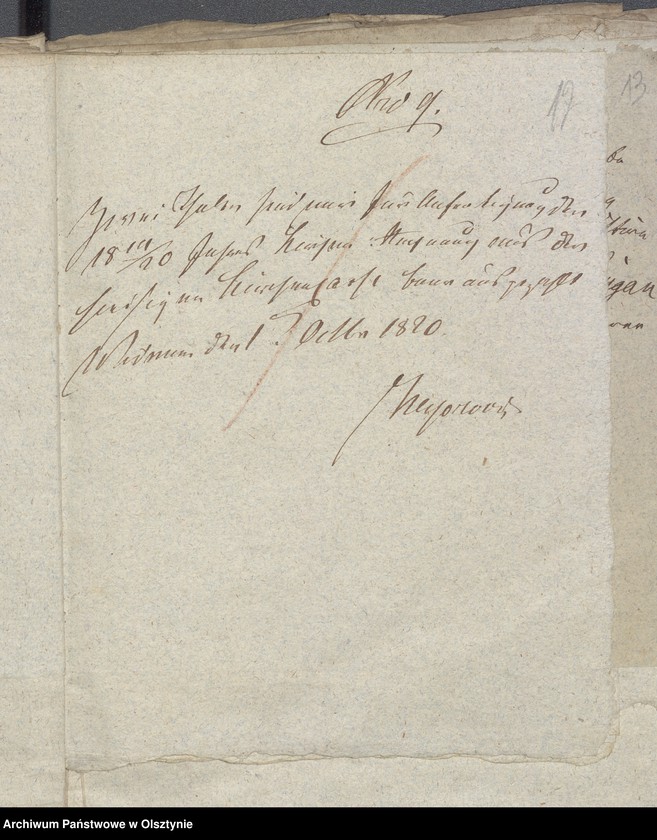 Nro 9.
17
13
Zwei Thaler sind mir für Anfertigung der
18 19/20 Jahres Kirchen Rechnung aus der
hiesigen Kirchencasse baar ausgezahlt
Widminnen den 1 Octbr 1820.
Archiwum Państwowe w Olsztynie